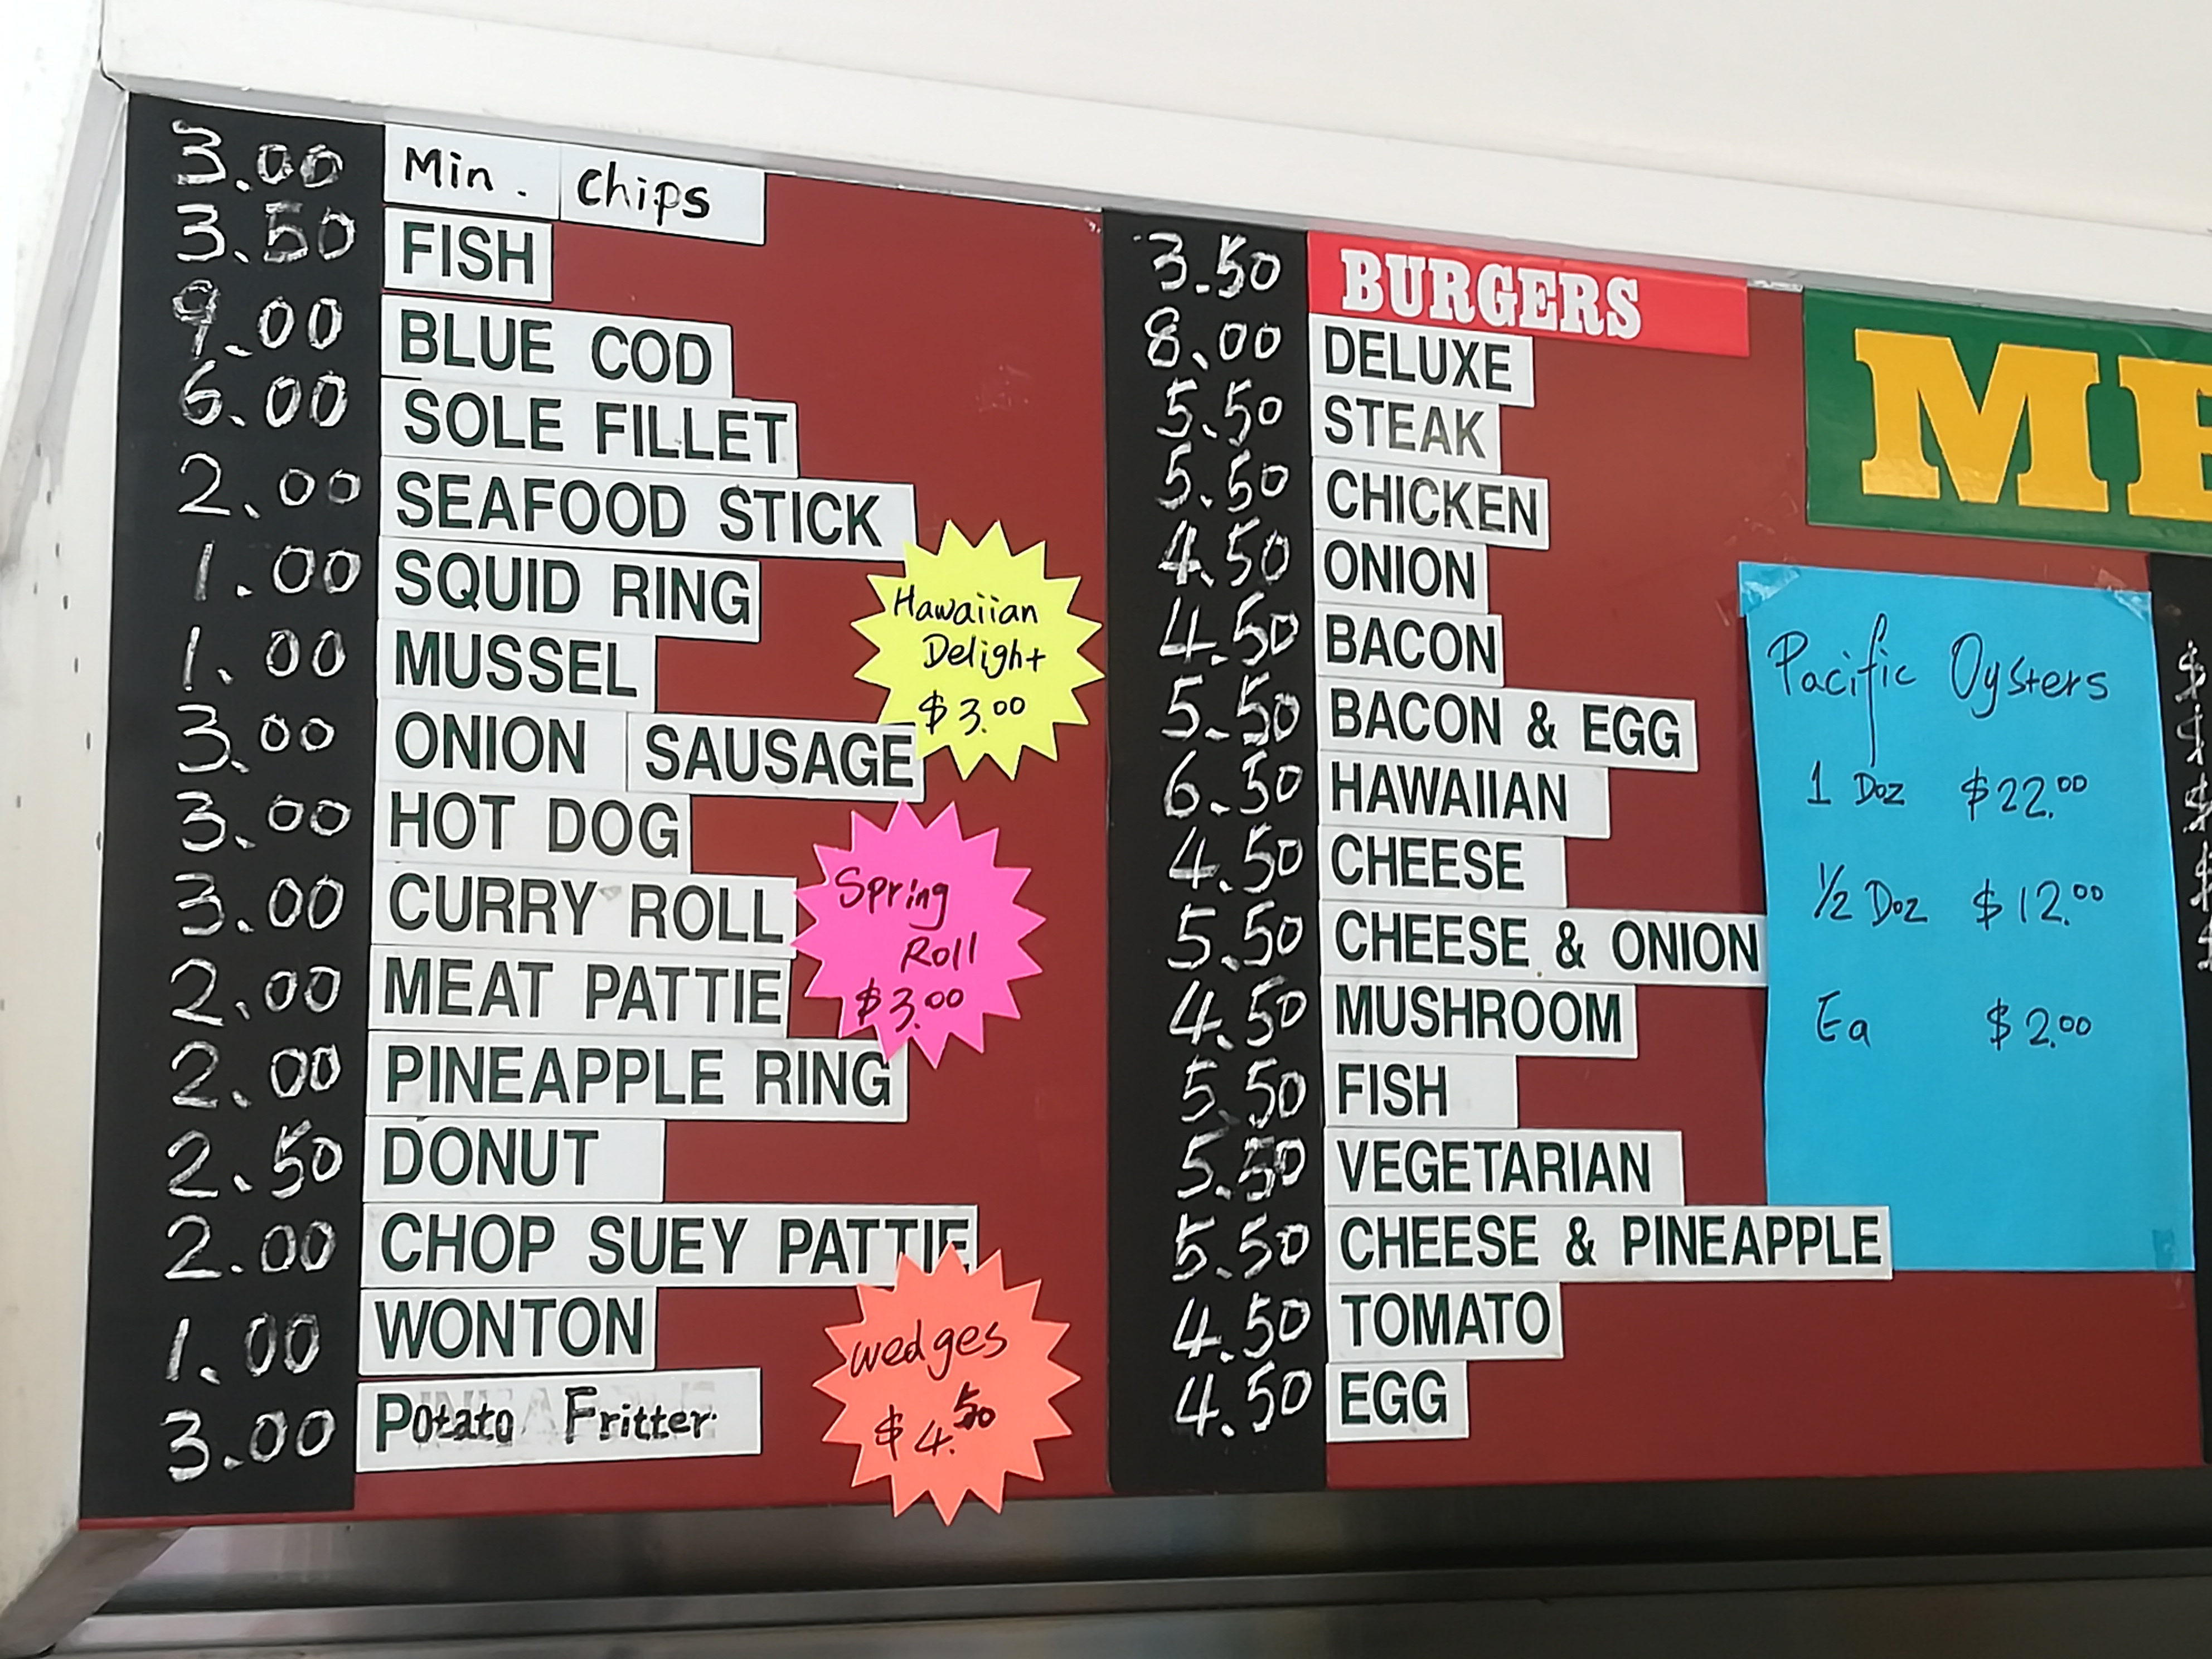 3.00 Min. chips
3.50 FISH
9.00 BLUE COD
6.00 SOLE FILLET
2.00 SEAFOOD STICK
1.00 SQUID RING
1.00 MUSSEL
3.00 ONION SAUSAGE
3.00 HOT DOG
3.00 CURRY ROLL
2.00 MEAT PATTIE
2.00 PINEAPPLE RING
2.50 DONUT
2.00 CHOP SUEY PATTIE
1.00 WONTON
3.00 Potato Fritter
Hawaiian
Delight
$3.00
Spring
Roll
$3.00
wedges
$4.50
3.50 BURGERS
8.00 DELUXE
5.50 STEAK
5.50 CHICKEN
4.50 ONION
4.50 BACON
5.50 BACON & EGG
6.50 HAWAIIAN
4.50 CHEESE
5.50 CHEESE & ONION
4.50 MUSHROOM
5.50 FISH
5.50 VEGETARIAN
5.50 CHEESE & PINEAPPLE
4.50 TOMATO
4.50 EGG
Pacific Oysters
1 Doz $22.00
1/2 Doz $12.00
Ea $2.00